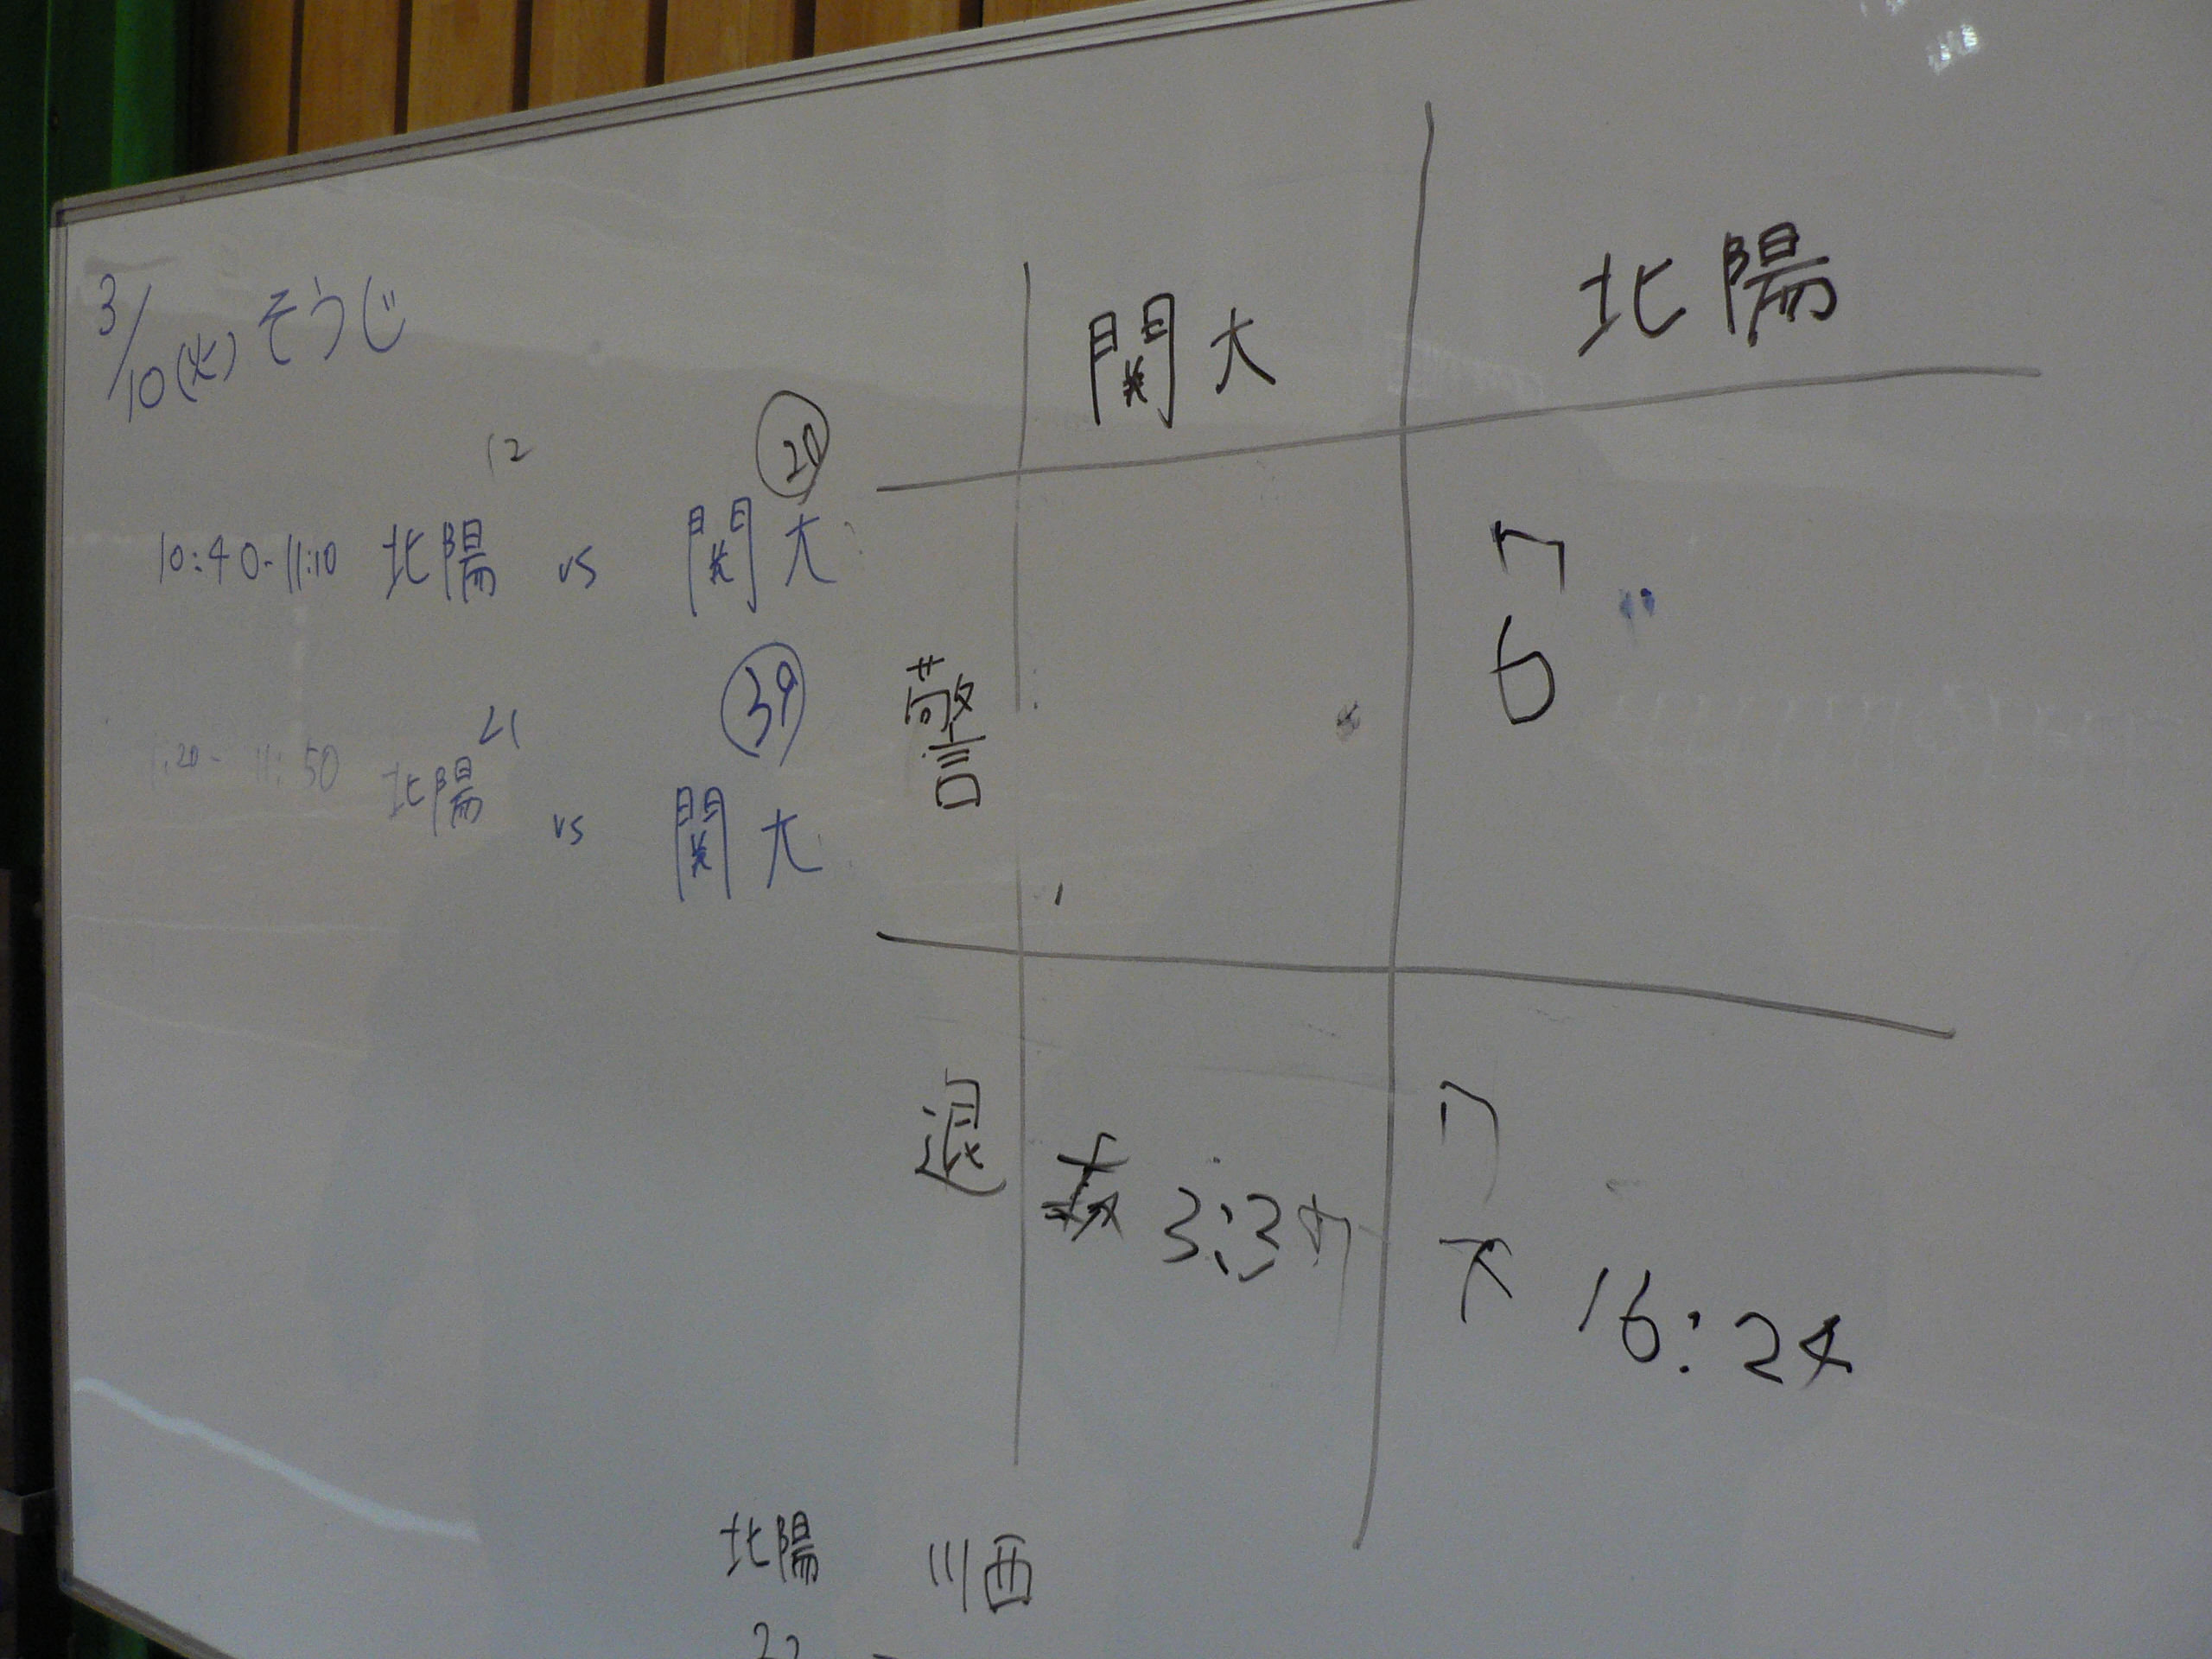 3/10(火) そうじ
12 20
10:40-11:10 北陽 vs 関大
21 39
11:20- 11:50 北陽 vs 関大
関大 北陽
警 7
6
退 3:34 7
16:24
北陽 川西
22